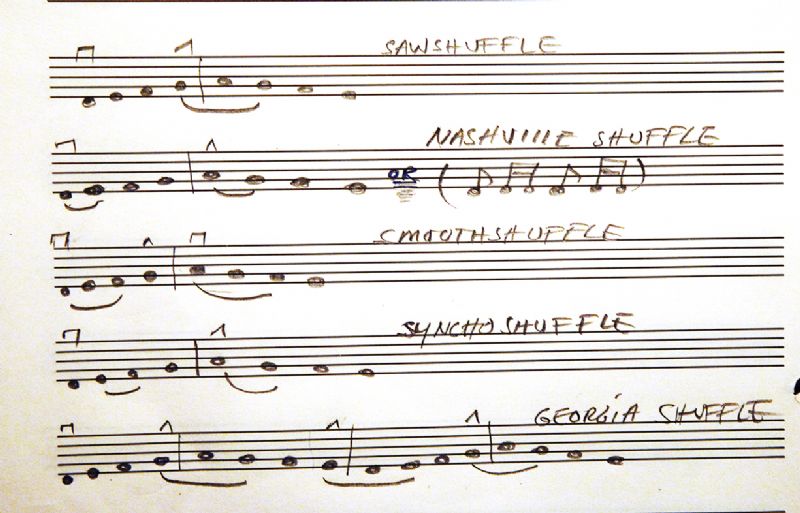 SAWSHUFFLE
NASHVIllE SHUFFLE
OR
SMOOTHSHUFFLE
SYNCHOSHUFFLE
GEORGIA SHUFFLE